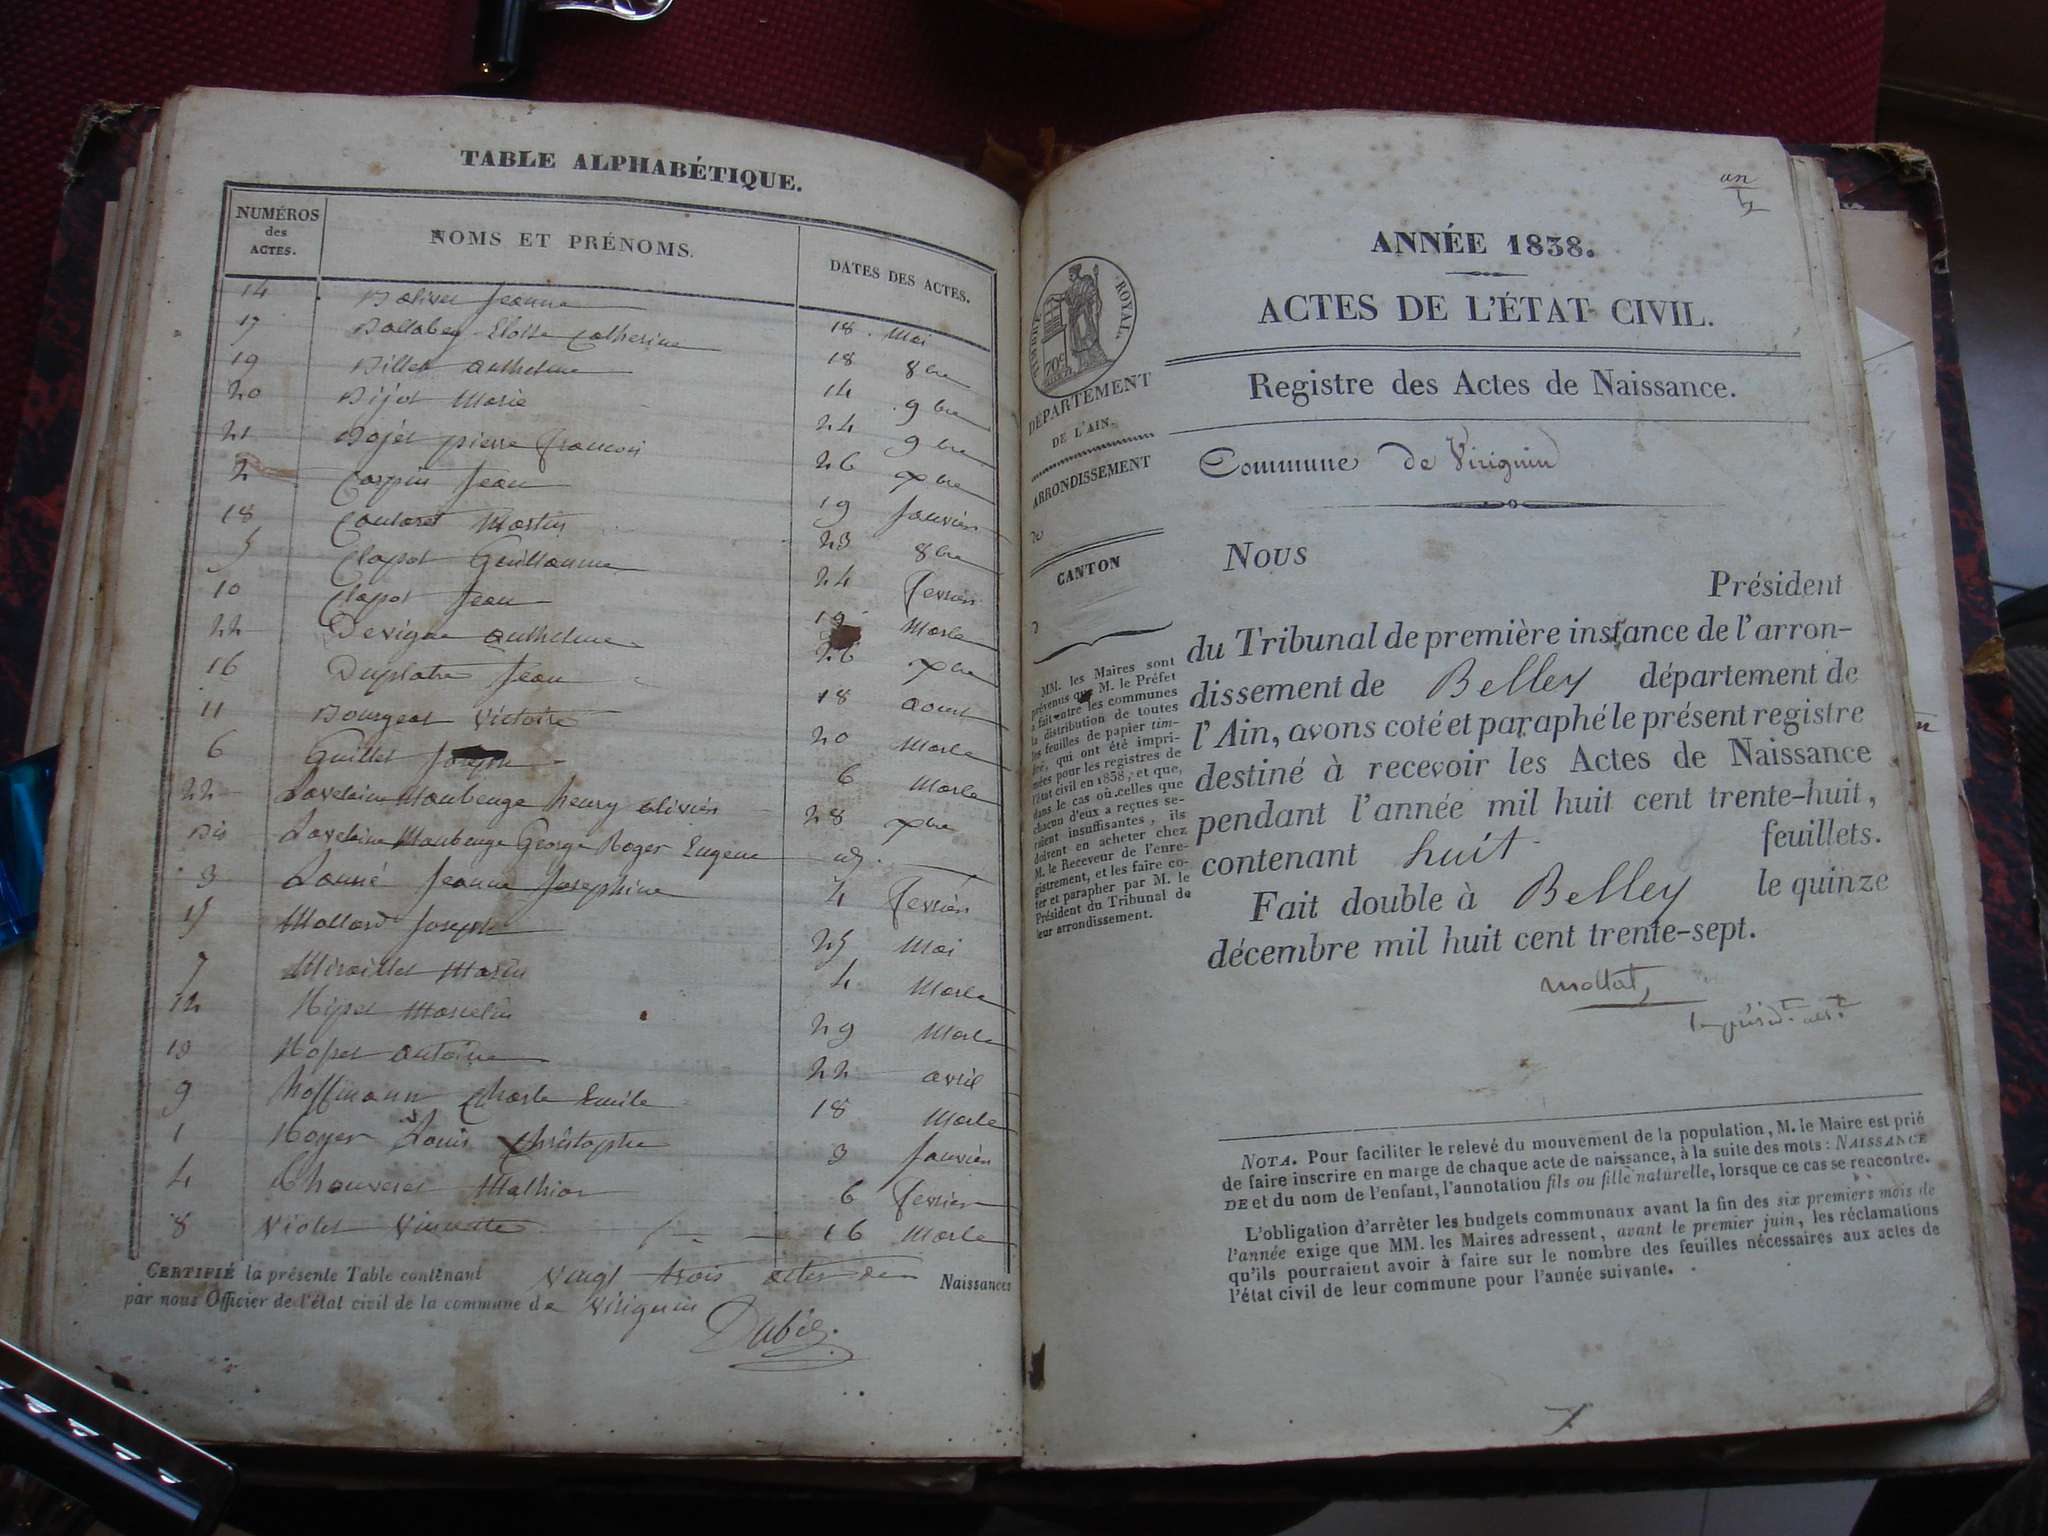 TABLE ALPHABÉTIQUE.
NUMÉROS des ACTES.
NOMS ET PRÉNOMS.
DATES DES ACTES.
14 Jeanne 18 Mai
17 Catherine 18 8bre
19 Billet anthelme 14 9bre
20 Marie 24 9bre
21 pierre francois 26 xbre
2 Carpin Jean 19 Janvier
18 Martin 23 8bre
5 Clapot Guillaume 24 fevrier
10 Clapot Jean 19 Marse
22 Devigne anthelme 26 xbre
16 Duplatre Jean 18 aoust
11 Victoire 20 Marse
6 Guillet Joseph 6 Marse
22 Lavelaine Maubeuge henry olivier 28 xbre
Bis Lavelaine Maubeuge George Roger Eugene
3 Jeanne Josephine 4 fevrier
15 Mollard Joseph 25 Mai
7 4 Marse
12 29 Marse
13 antoine 22 avril
9 hoffmann Charle Emile 18 Marse
1 Louis Christophe 3 Janvier
4 6 fevrier
8 Violet 16 Marse
CERTIFIÉ la présente Table contenant vingt trois actes de Naissances
par nous Officier de l'état civil de la commune de Virignin
un
ANNÉE 1838.
ACTES DE L'ÉTAT CIVIL.
Registre des Actes de Naissance.
TIMBRE ROYAL
70c
DÉPARTEMENT
DE L'AIN.
ARRONDISSEMENT
de
CANTON
d
MM. les Maires sont
prévenus que M. le Préfet
a fait entre les communes
la distribution de toutes
les feuilles de papier tim-
bré, qui ont été impri-
mées pour les registres de
l'état civil en 1838, et que,
dans le cas où celles que
chacun d'eux a reçues se-
raient insuffisantes, ils
doivent en acheter chez
M. le Receveur de l'enre-
gistrement, et les faire co-
ter et parapher par M. le
Président du Tribunal de
leur arrondissement.
Commune de Virignin
NOUS
Président
du Tribunal de première instance de l'arron-
dissement de Belley département de
l'Ain, avons coté et paraphé le présent registre
destiné à recevoir les Actes de Naissance
pendant l'année mil huit cent trente-huit,
contenant huit feuillets.
Fait double à Belley le quinze
décembre mil huit cent trente-sept.
NOTA. Pour faciliter le relevé du mouvement de la population, M. le Maire est prié
de faire inscrire en marge de chaque acte de naissance, à la suite des mots : NAISSANCE
DE et du nom de l'enfant, l'annotation fils ou fille naturelle, lorsque ce cas se rencontre.
L'obligation d'arrêter les budgets communaux avant la fin des six premiers mois de
l'année exige que MM. les Maires adressent, avant le premier juin, les réclamations
qu'ils pourraient avoir à faire sur le nombre des feuilles nécessaires aux actes de
l'état civil de leur commune pour l'année suivante.